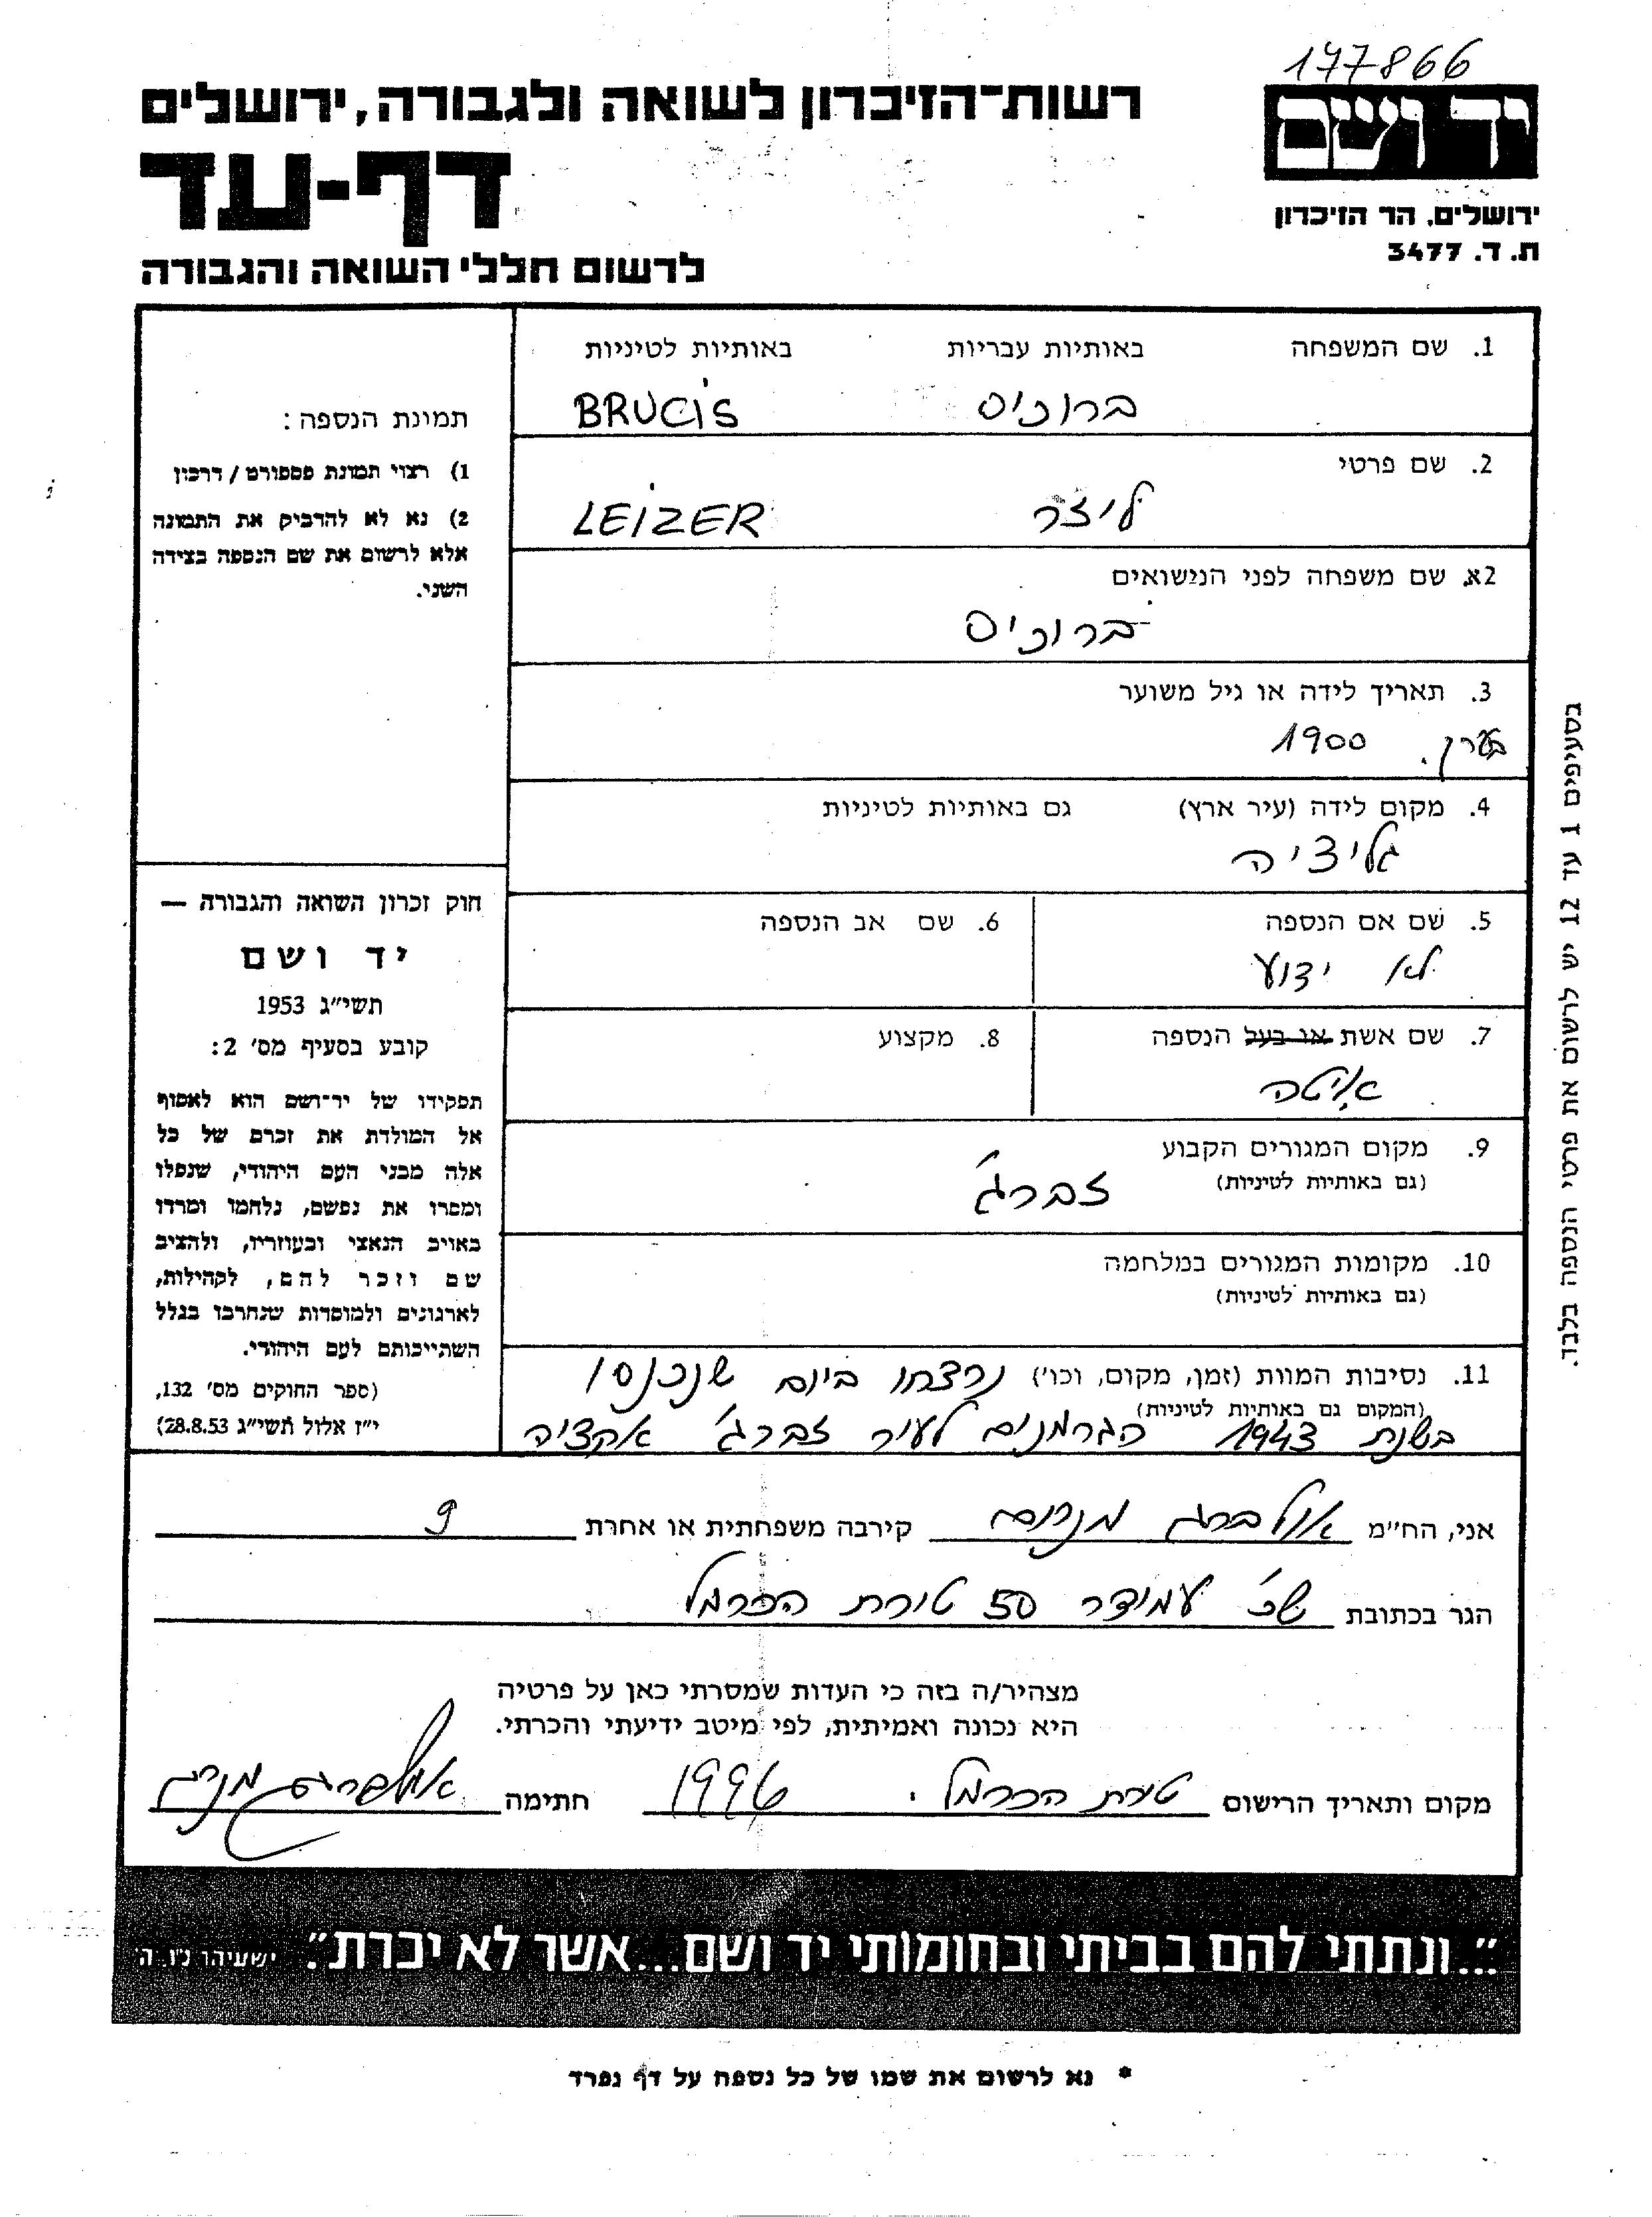 177866
יד ושם
ירושלים, הר הזיכרון
ת. ד. 3477
רשות־הזיכרון לשואה ולגבורה, ירושלים
דף-עד
לרשום חללי השואה והגבורה
1. שם המשפחה באותיות עבריות באותיות לטיניות
ברוכיס BRUCIS
2. שם פרטי
ליזר LEIZER
2א. שם משפחה לפני הנישואים
ברוכיס
3. תאריך לידה או גיל משוער
בערך. 1900
4. מקום לידה (עיר ארץ) גם באותיות לטיניות
גליציה
5. שם אם הנספה 6. שם אב הנספה
לא ידוע
7. שם אשת או בעל הנספה 8. מקצוע
איטה
9. מקום המגורים הקבוע
(גם באותיות לטיניות)
זברג'
10. מקומות המגורים במלחמה
(גם באותיות לטיניות)
11. נסיבות המוות (זמן, מקום, וכו') נרצחו ביום שנכנסו
(המקום גם באותיות לטיניות)
בשנת 1943 הגרמנים לעיר זברג' אקציה
תמונת הנספה:
1) רצוי תמונת פספורט / דרכון
2) נא לא להדביק את התמונה
אלא לרשום את שם הנספה בצידה
השני.
חוק זכרון השואה והגבורה —
יד ושם
תשי״ג 1953
קובע בסעיף מס' 2:
תפקידו של יד־ושם הוא לאסוף
אל המולדת את זכרם של כל
אלה מבני העם היהודי, שנפלו
ומסרו את נפשם, נלחמו ומרדו
באויב הנאצי ובעוזריו, ולהציב
שם וזכר להם, לקהילות,
לארגונים ולמוסדות שנחרבו בגלל
השתייכותם לעם היהודי.
(ספר החוקים מס' 132,
י״ז אלול תשי״ג 28.8.53)
בסעיפים 1 עד 12 יש לרשום את פרטי הנספה בלבד.
אני, הח״מ אולברג מנחם קירבה משפחתית או אחרת
הגר בכתובת שכ' עמידר 50 טירת הכרמל
מצהיר/ה בזה כי העדות שמסרתי כאן על פרטיה
היא נכונה ואמיתית, לפי מיטב ידיעתי והכרתי.
מקום ותאריך הרישום טירת הכרמל. 1996 חתימה אולברג מנחם
״...ונתתי להם בביתי ובחומותי יד ושם...אשר לא יכרת״. ישעיהו נ״ו, ה'
* נא לרשום את שמו של כל נספה על דף נפרד